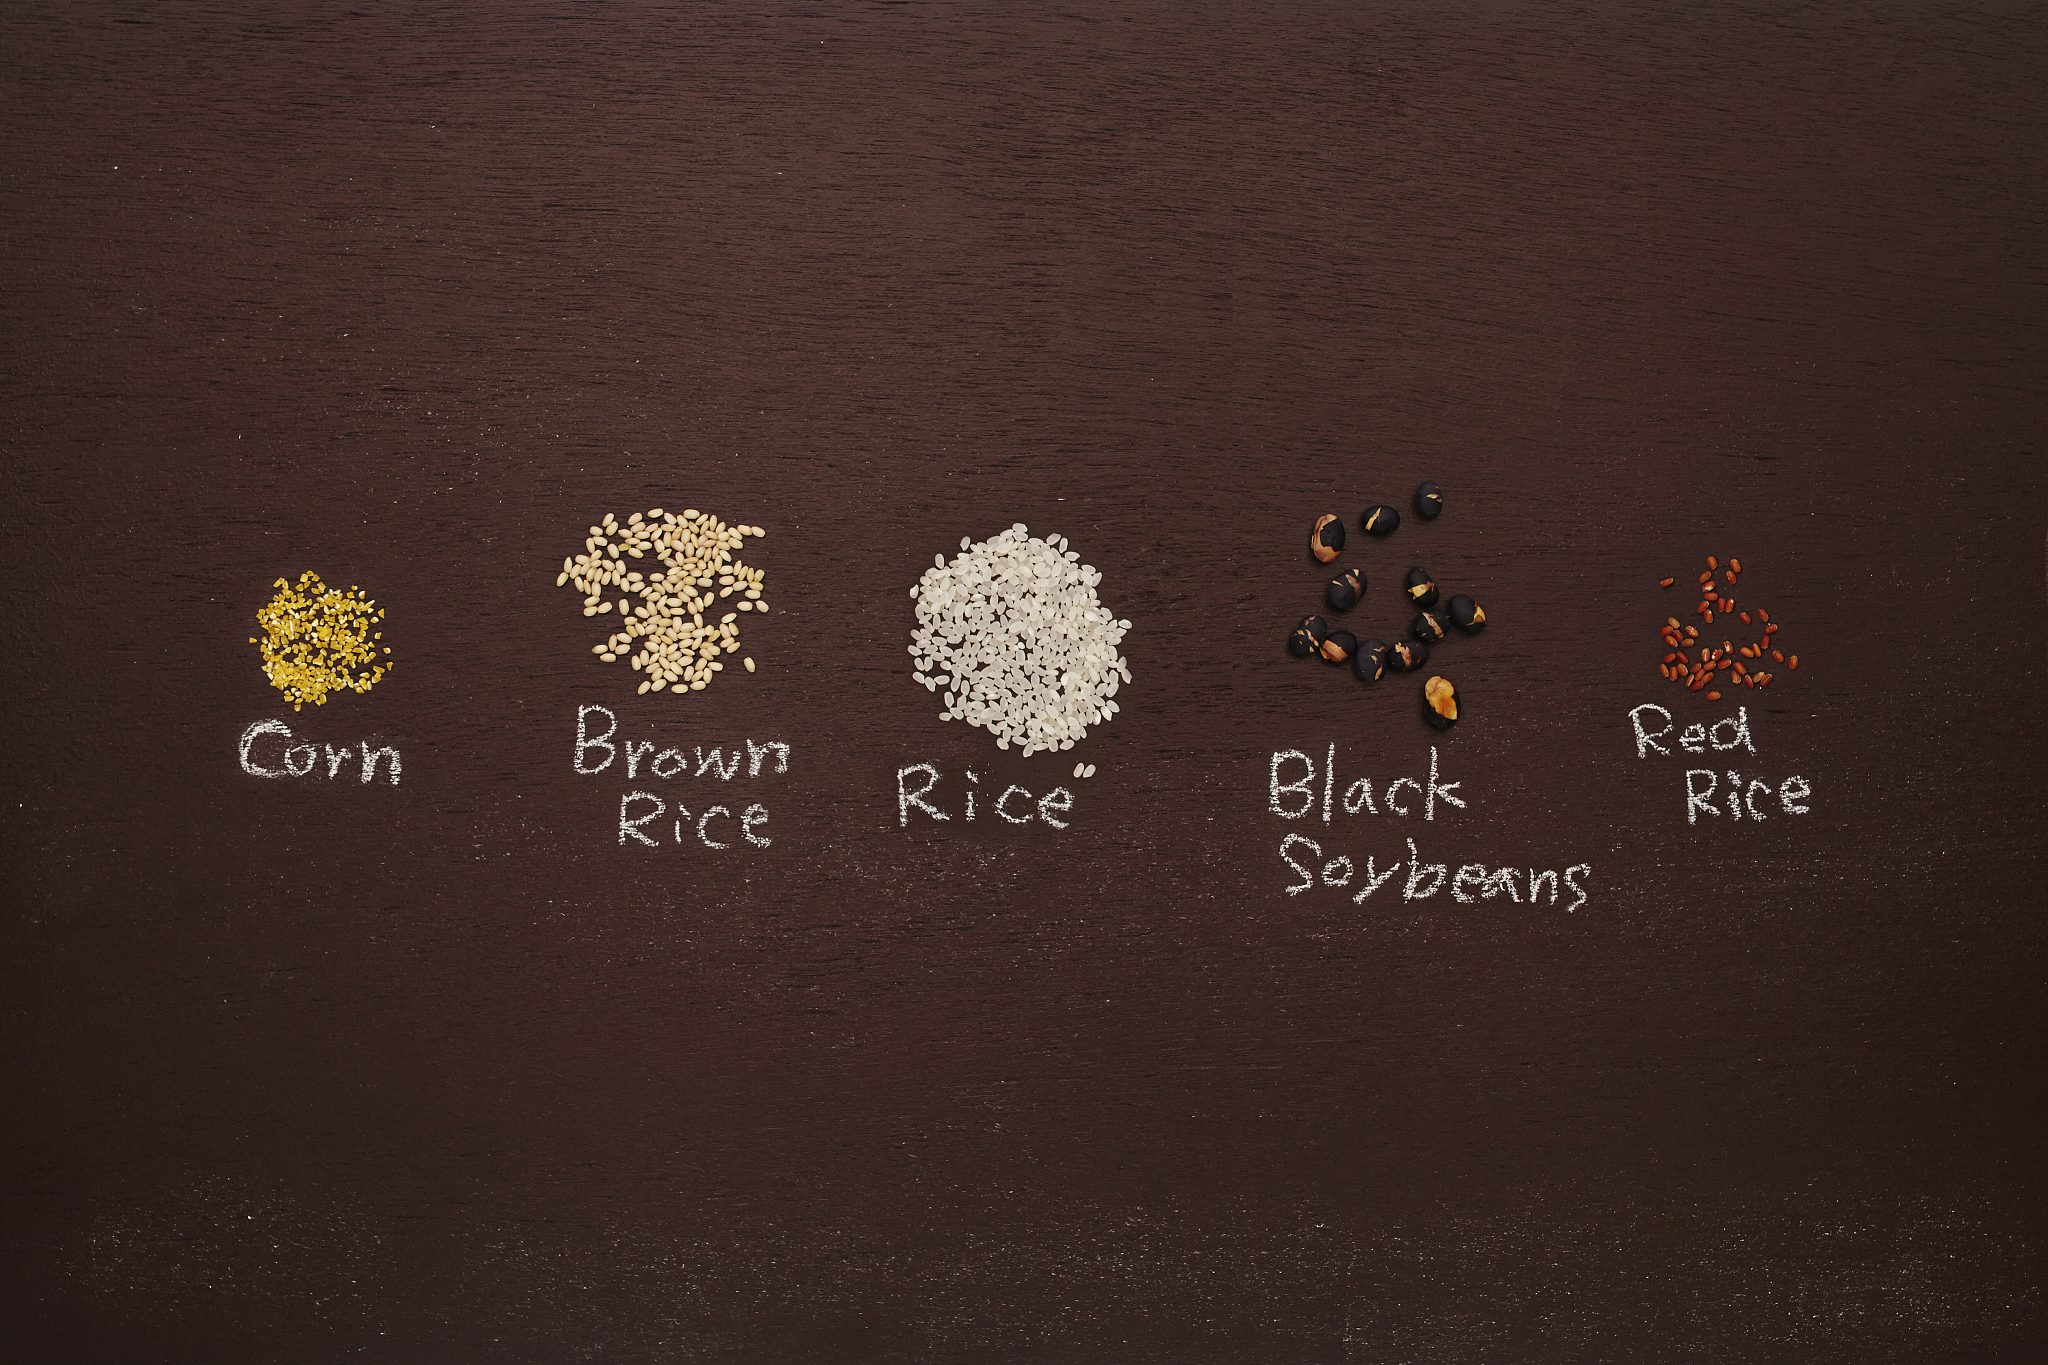 Corn
Brown
Rice
Rice
Black
Soybeans
Red
Rice